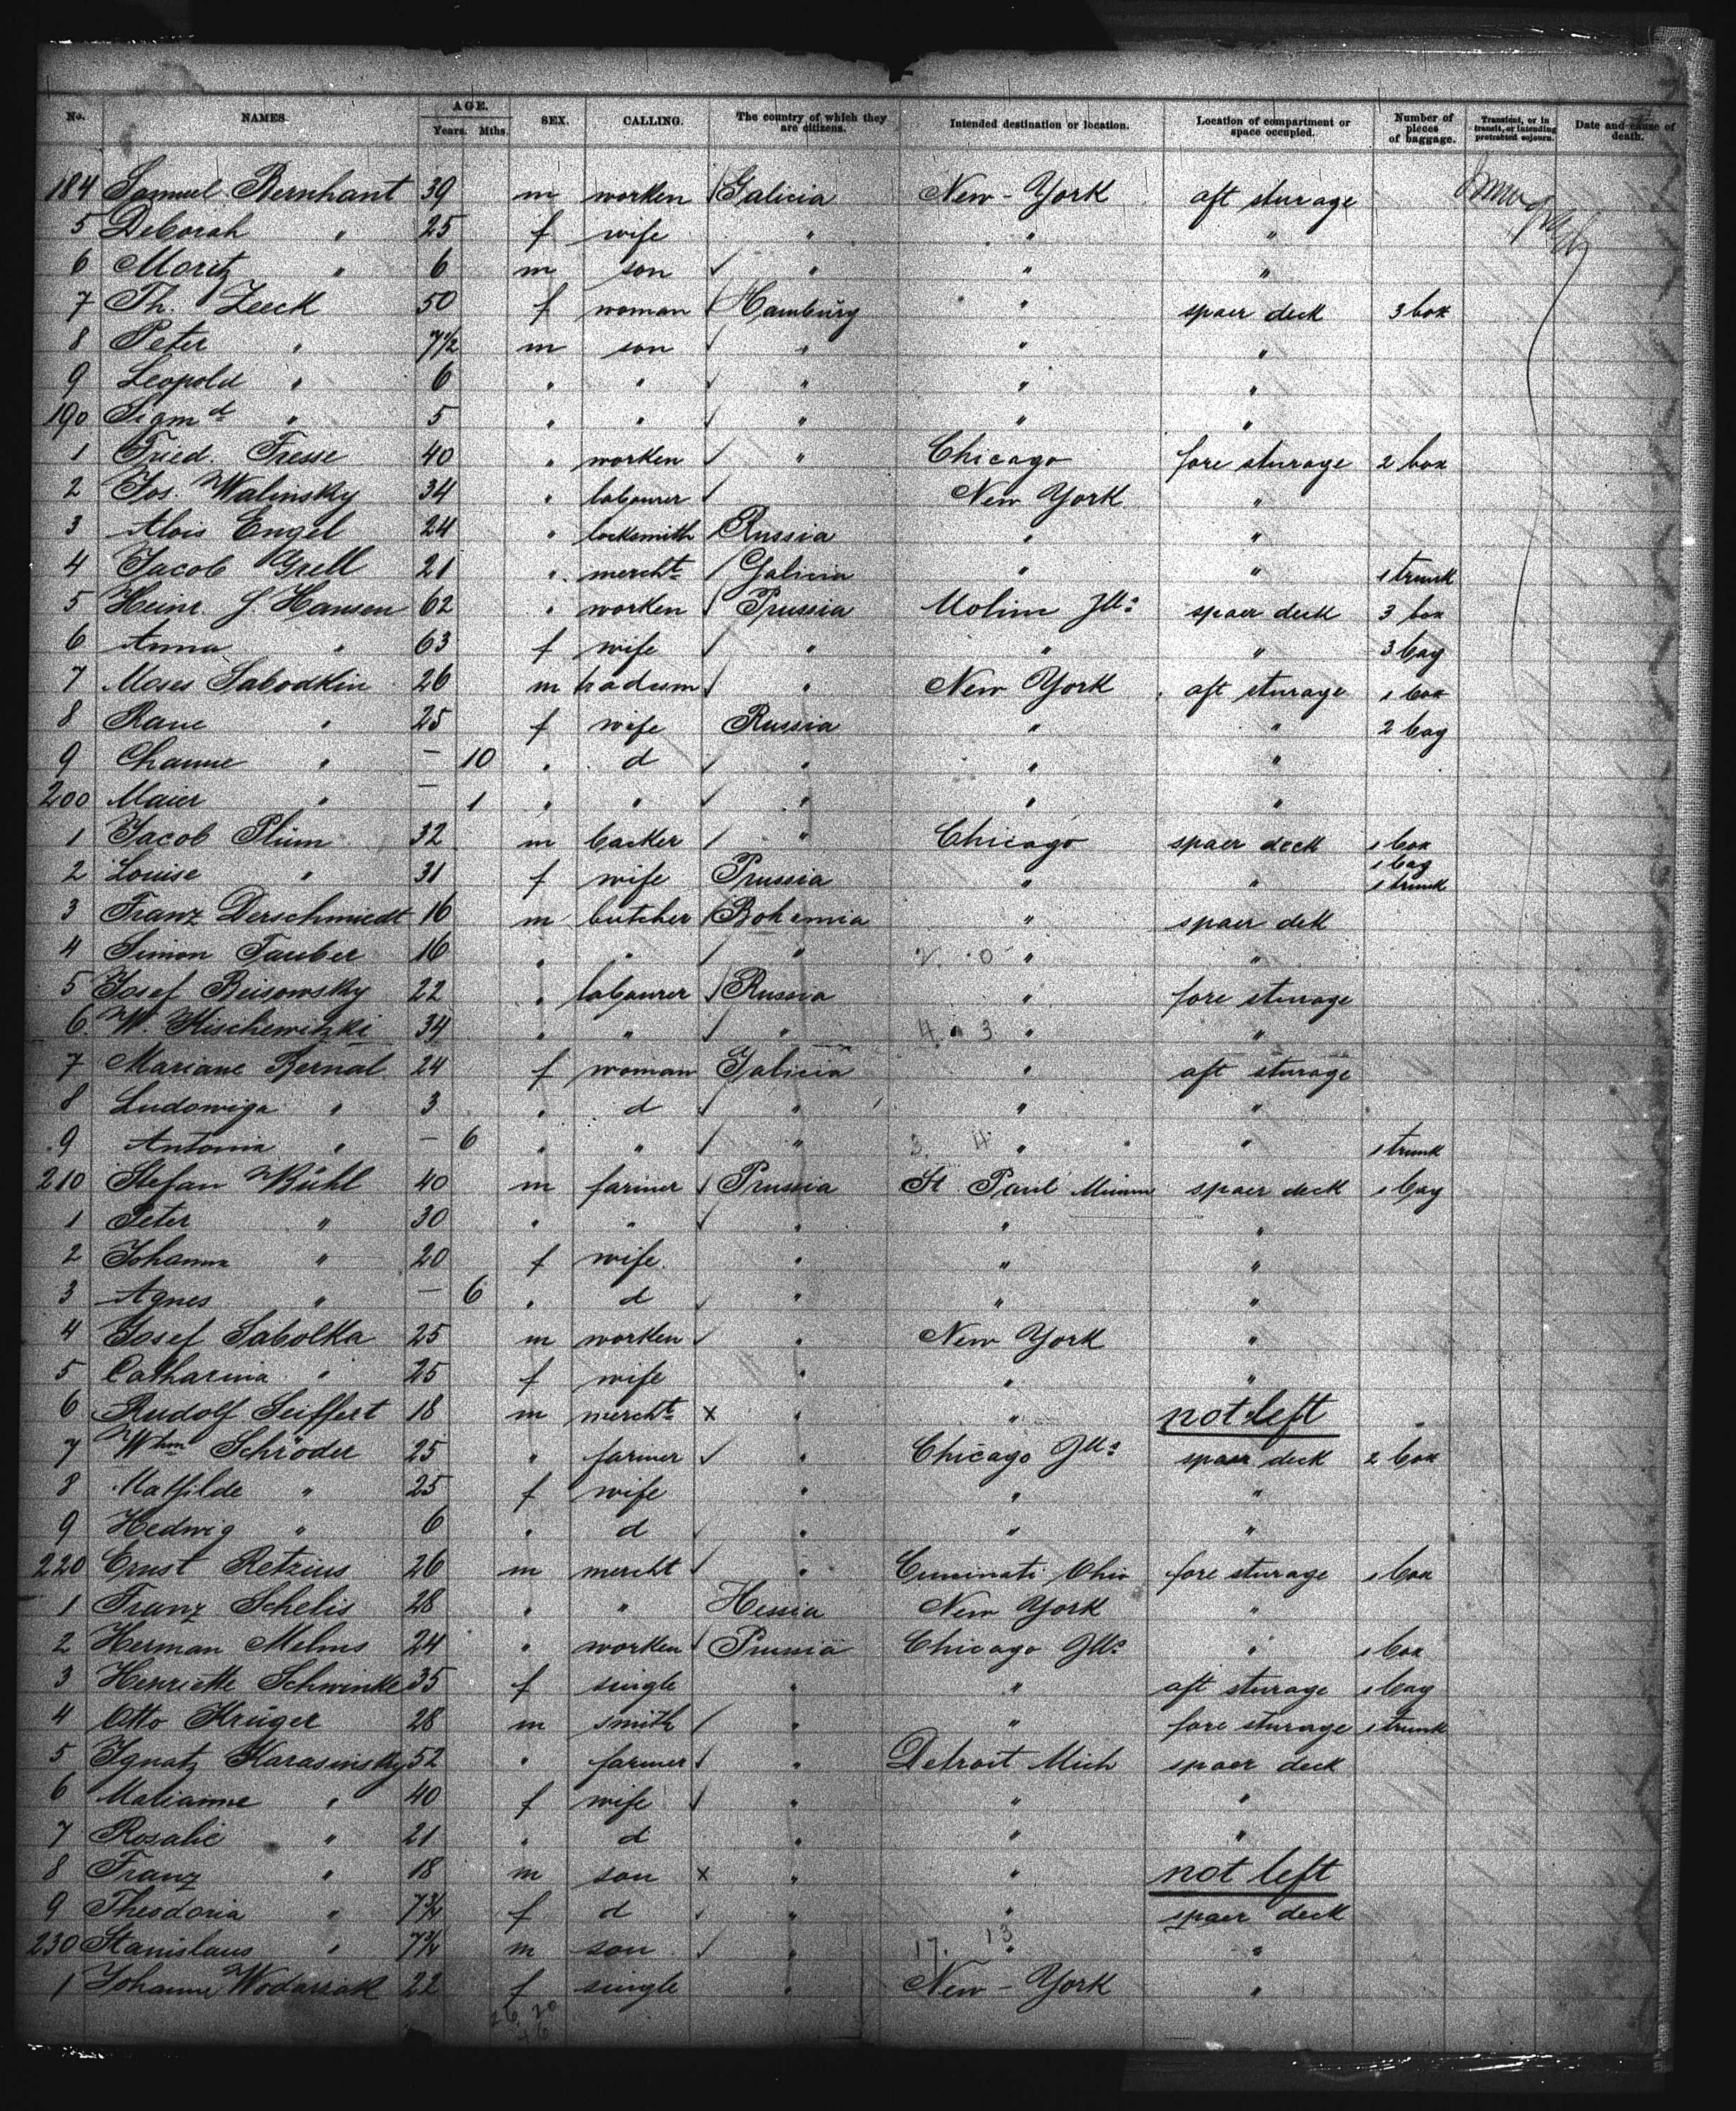 No. NAMES. AGE. Years. Mths. SEX. CALLING. The country of which they are citizens. Intended destination or location. Location of compartment or space occupied. Number of pieces of baggage. Transient, or in transit, or intending protracted sojourn. Date and cause of death.
184 Samuel Bernhant 39 m worken Galicia New-York aft sturage
5 Deborah " 25 f wife " " "
6 Moritz " 6 m son " " "
7 Th. Zeeck 50 f woman Hamburg " spaer deck 3 box
8 Peter " 7 1/2 m son " " "
9 Leopold " 6 " " " " "
190 Sigmd " 5 " " " " "
1 Fried. Fresse 40 " worken " Chicago fore sturage 2 box
2 Jos. Walinsky 34 " labourer New York "
3 Alois Engel 24 " locksmith Russia " "
4 Jacob Grell 21 " mercht Galicia " " 1 trunk
5 Heinr J. Hansen 62 " worken Prussia Moline Ills spaer deck 3 box
6 Anna " 63 f wife " " " 3 bag
7 Moses Sabodkin 26 m " New York aft sturage 1 box
8 Rane " 25 f wife Russia " " 2 bag
9 Channe " – 10 " d " " "
200 Maier " – 1 " " " " "
1 Jacob Plum 32 m backer " Chicago spaer deck 1 box
1 bag
2 Louise " 31 f wife Prussia " " 1 trunk
3 Franz Derschmiedt 16 m butcher Bohemia " spaer dek
4 Simon Tauber 16 " " " " "
5 Josef Reisowsky 22 " labourer Russia " fore sturage
6. W. Kischewitzki 34 " " " " "
7 Mariane Bernal 24 f woman Galicia " aft sturage
8 Ludowiga " 3 " d " " "
9 Antonia " – 6 " " " " " 1 trunk
210 Stefan Bühl 40 m farmer Prussia St. Paul Minn spaer deck 1 bag
1 Peter " 30 " " " " "
2 Johanna " 20 f wife " " "
3 Agnes " – 6 " d " " "
4 Josef Sabolka 25 m worken " New York "
5 Catharina " 25 f wife " " "
6 Rudolf Seiffert 18 m mercht x " " not left
7 Whm Schröder 25 " farmer " Chicago Ills spaer deck 2 box
8 Mathilde " 25 f wife " " "
9 Hedwig " 6 " d " " "
220 Ernst Retzius 26 m mercht " Cincinati Ohio fore sturage 1 box
1 Franz Schelis 28 " " Hessia New York "
2 Herman Melms 24 " worken Prussia Chicago Ills " 1 box
3 Henriette Schwinke 35 f single " " aft sturage 1 bag
4 Otto Krüger 28 m smith " " fore sturage 1 trunk
5 Ignatz Karasinsky 52 " farmer " Detroit Mich spaer deck
6 Marianne " 40 f wife " " "
7 Rosalie " 21 " d " " "
8 Franz " 18 m son x " " not left
9 Theodoria " 7 3/4 f d " " spaer deck
230 Stanislaus " 7 3/4 m son " " "
1 Johanna Wodarzak 22 f single " New-York "